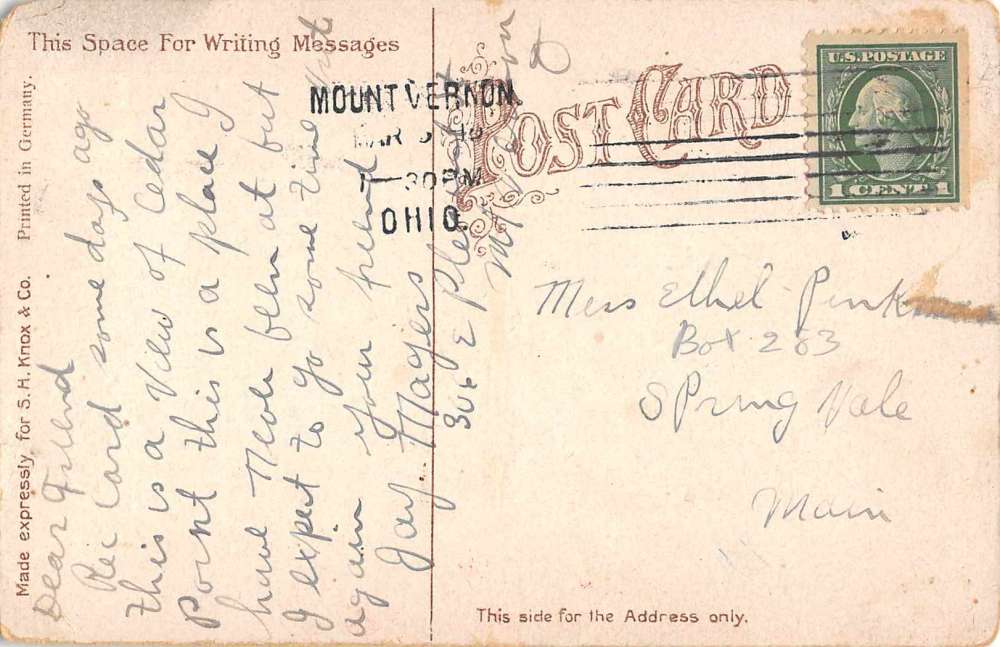 This Space For Writing Messages
Made expressly for S. H. Knox & Co. Printed in Germany.
Dear Friend
Rec Card some days ago
this is a View of Cedar
Point this is a place I
have Neve been at but
I expect to go some time
again your friend
Jay. Magers
306 E Pleasant
Mt
O
MOUNT VERNON.
MAR
30 PM
OHIO.
POST CARD
U.S. POSTAGE
1 CENT 1
Miss Ethel Pink
Box 263
Spring Vale
Main
This side for the Address only.